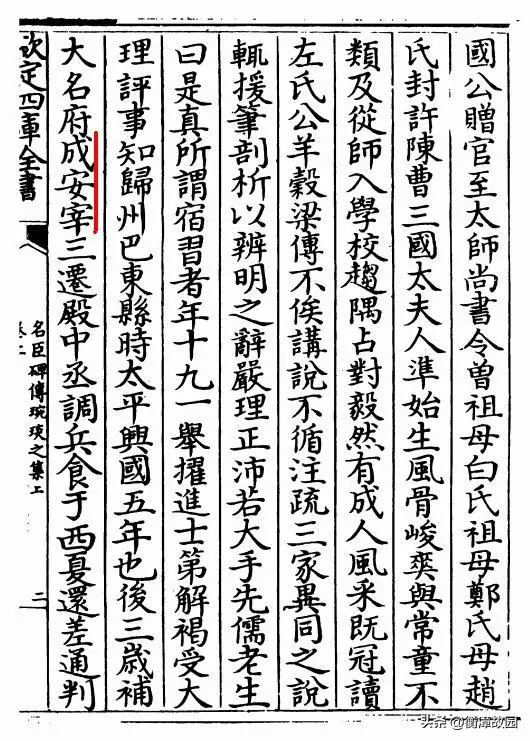 國公贈官至太師尚書令曾祖母白氏祖母鄭氏母趙
氏封許陳曹三國太夫人準始生風骨峻爽與常童不
類及從師入學校趨隅占對毅然有成人風采既冠讀
左氏公羊穀梁傳不俟講說不循注疏三家異同之說
輒援筆剖析以辨明之辭嚴理正沛若大手先儒老生
曰是真所謂宿習者年十九一舉擢進士第解褐受大
理評事知歸州巴東縣時太平興國五年也後三歲補
大名府成安宰三遷殿中丞調兵食于西夏還差通判
欽定四庫全書
名臣碑傳琬琰之集上
卷二
二
头条 @衡漳故园